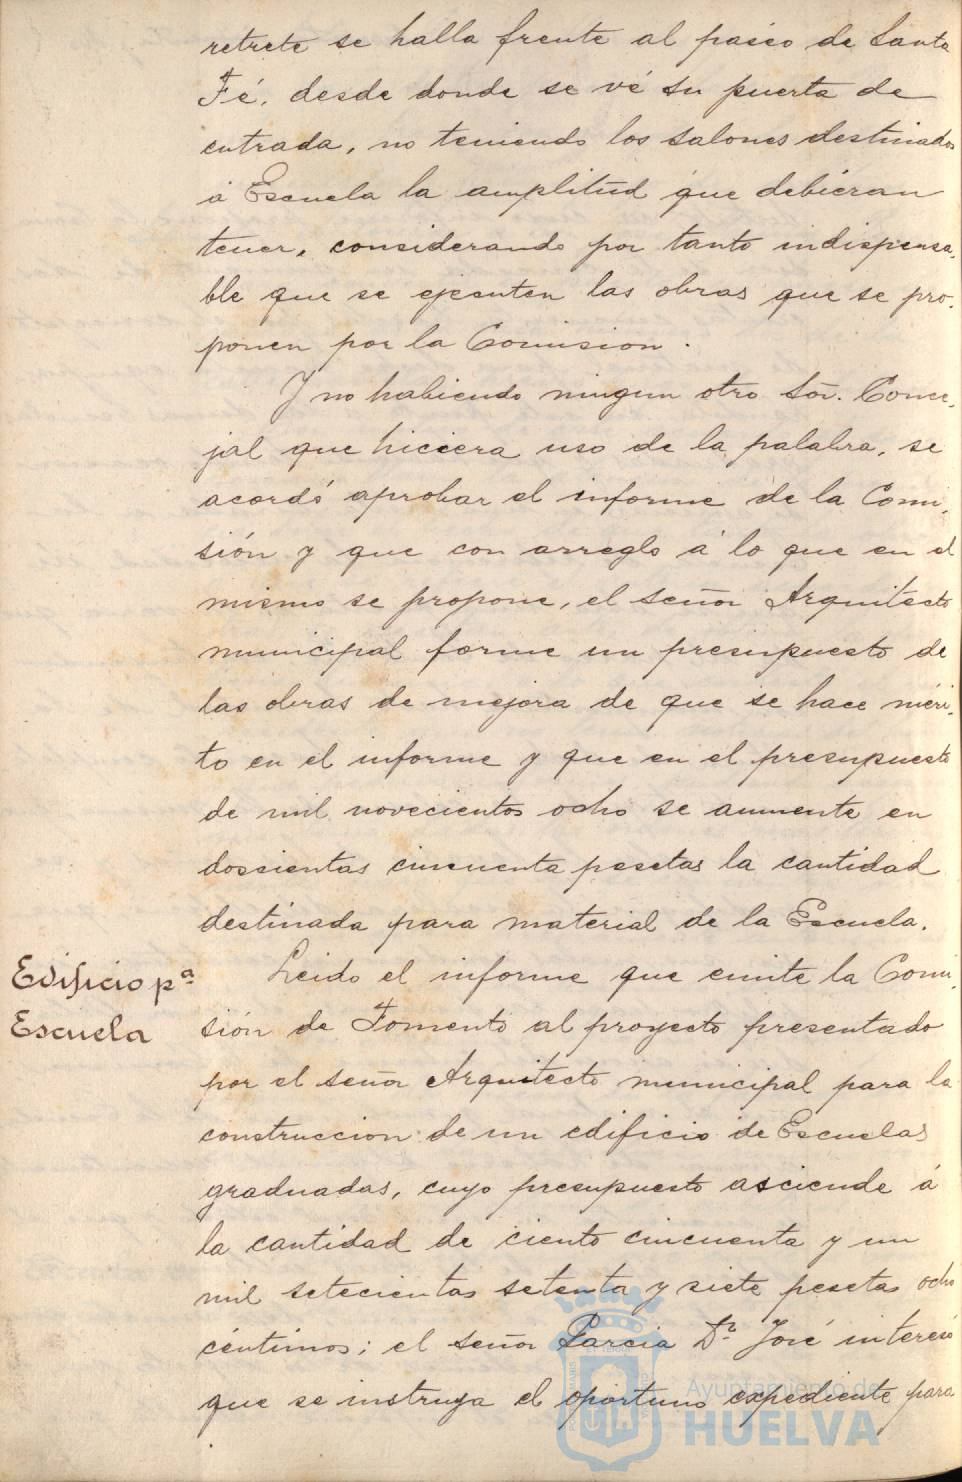 retrete se halla frente al paseo de Santa
Fé, desde donde se vé su puerta de
entrada, no teniendo los salones destinados
á Escuela la amplitud que debieran
tener, considerando por tanto indispensa-
ble que se ejecuten las obras que se pro-
ponen por la Comision.
Y no habiendo ningun otro Sor. Conce-
jal que hiciera uso de la palabra, se
acordó aprobar el informe de la Comi-
sión y que con arreglo á lo que en el
mismo se propone, el señor Arquitecto
municipal forme un presupuesto de
las obras de mejora de que se hace méri-
to en el informe y que en el presupuesto
de mil novecientos ocho se aumente en
doscientas cincuenta pesetas la cantidad
destinada para material de la Escuela.
Edificio pª
Escuela
Leido el informe que emite la Comi-
sión de Fomento al proyecto presentado
por el señor Arquitecto municipal para la
construccion de un edificio de Escuelas
graduadas, cuyo presupuesto asciende á
la cantidad de ciento cincuenta y un
mil setecientas setenta y siete pesetas ocho
céntimos; el señor Garcia Dn. José interesó
que se instruya el oportuno expediente para
Ayuntamiento de
HUELVA